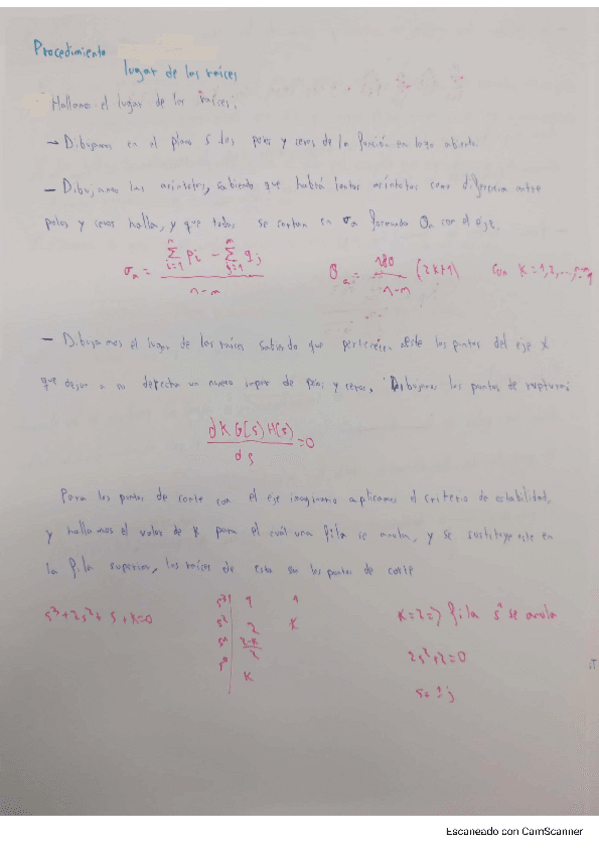 Procedimiento
lugar de las raíces
Hallamos el lugar de las raíces:
→ Dibujamos en el plano s los polos y ceros de la función en lazo abierto.
— Dibujamos las asíntotas, sabiendo que habrá tantas asíntotas como diferencia entre
polos y ceros halla, y que todas se cortan en σa formando θa con el eje.
σa = (∑ i=1 n pi − ∑ j=1 m qj) / (n−m) θa = 180/(n−m) (2K+1) con K=1,2,...,
— Dibujamos el lugar de las raíces sabiendo que pertenecen los puntos del eje X
que dejan a su derecha un número impar de polos y ceros. Dibujamos los puntos de ruptura:
dKG(s)H(s)/ds = 0
Para los puntos de corte con el eje imaginario aplicamos el criterio de estabilidad,
y hallamos el valor de K para el cuál una fila se anula, y se sustituye este en
la fila superior, las raíces de esta son los puntos de corte
s³+2s²+s+K=0
s³ 1 1
s² 2 K
(2-K)/2
s⁰ K
K=2=> fila s¹ se anula
2s²+2=0
1j
Escaneado con CamScanner